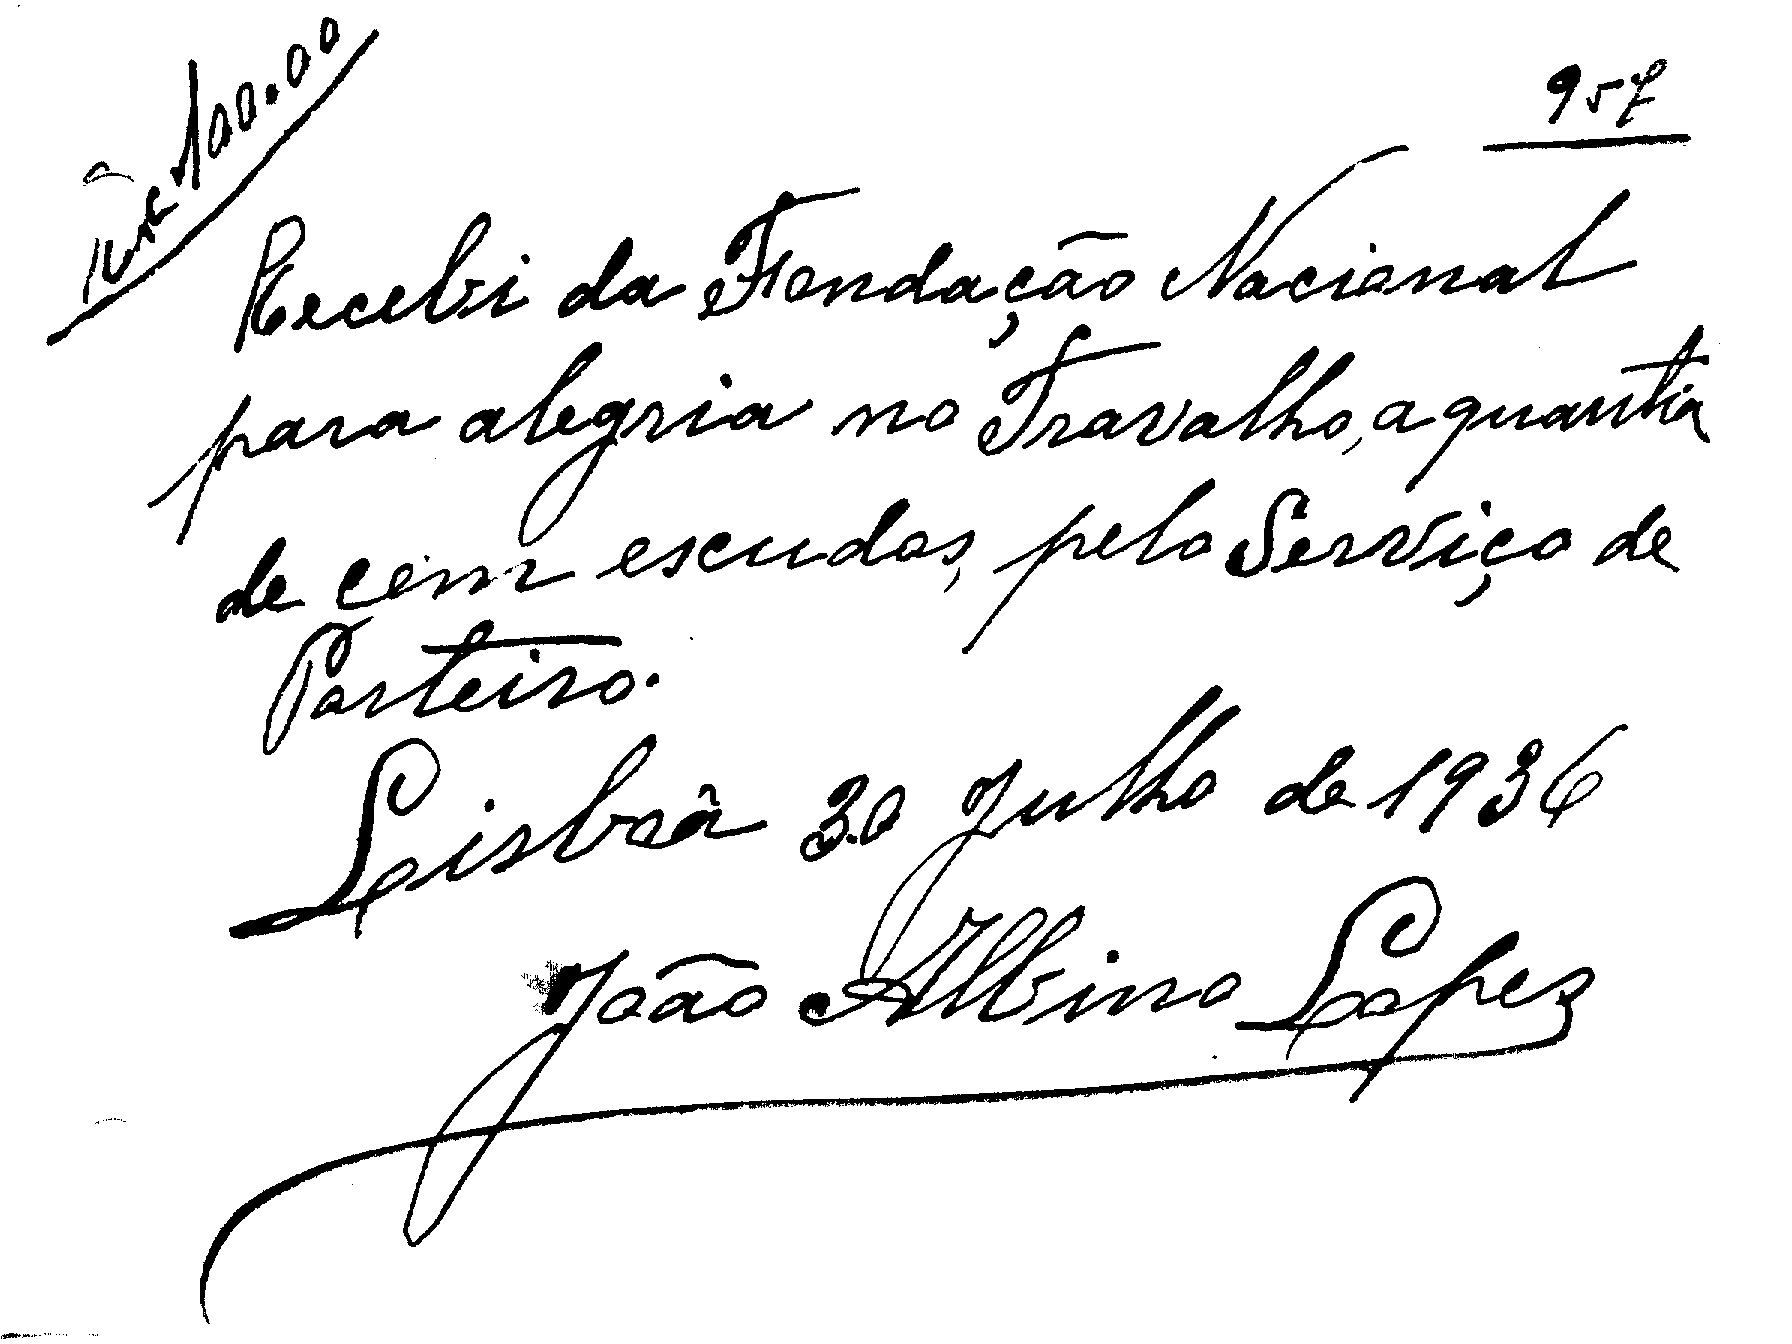 100.00
957
Recebi da Fondação Nacional
para alegria no Travalho, a quantia
de cem escudos, pelo Serviço de
Porteiro.
Lisboâ 30 Julho de 1936
João Albino Lopez